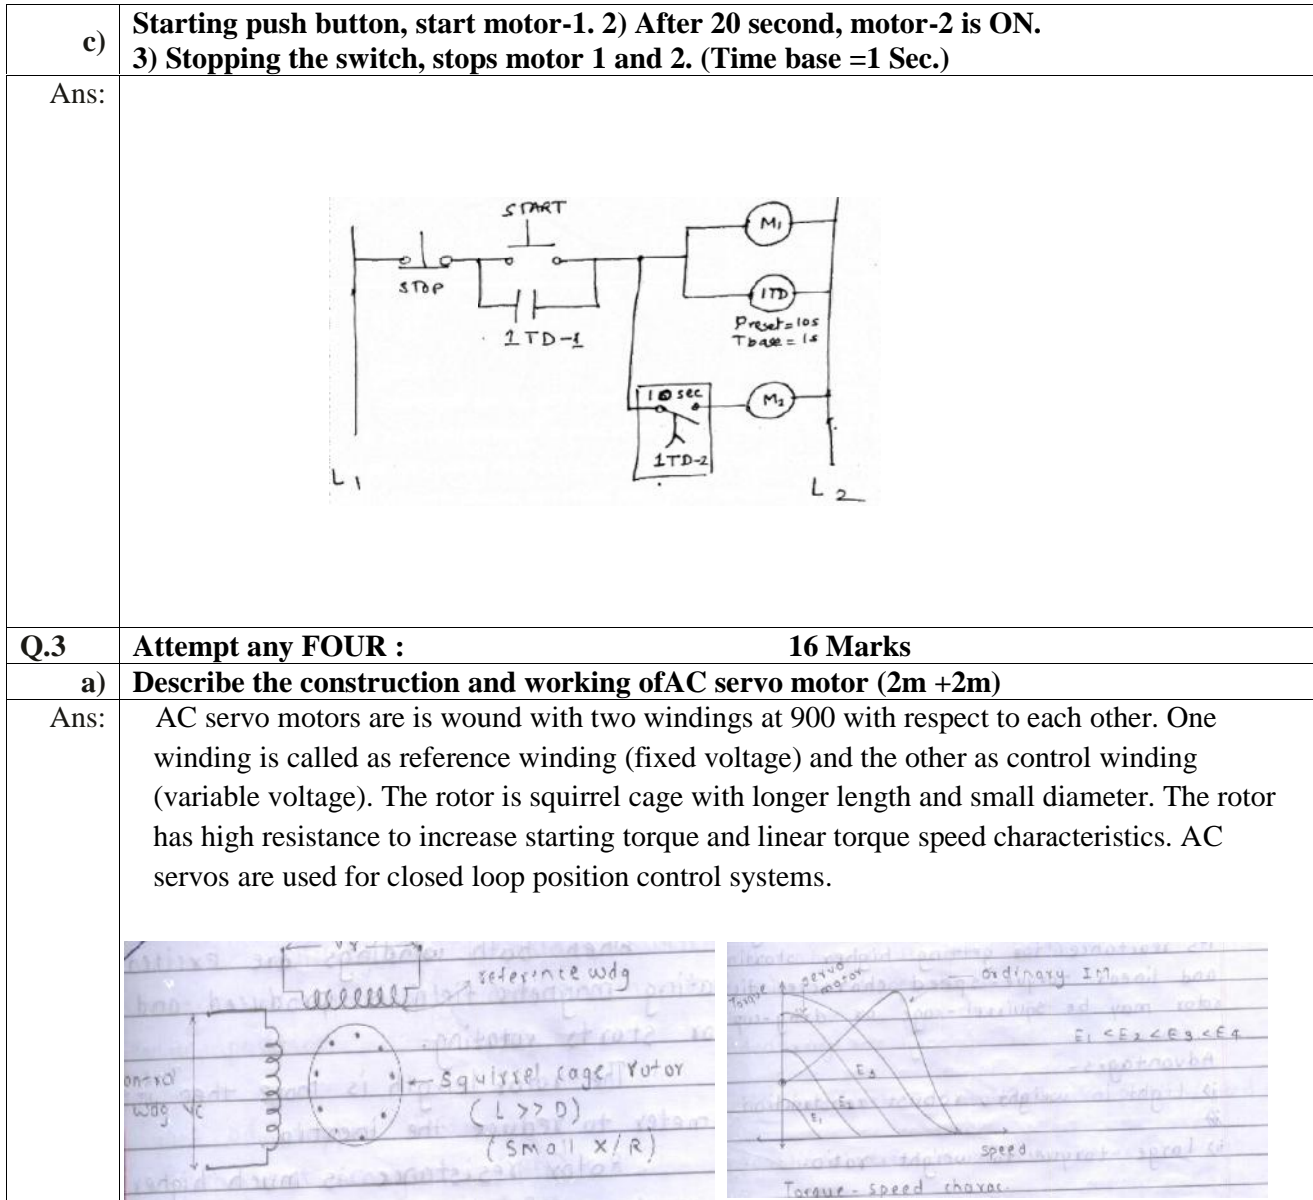 c) Starting push button, start motor-1. 2) After 20 second, motor-2 is ON.
3) Stopping the switch, stops motor 1 and 2. (Time base =1 Sec.)
Ans:
START
M1
STOP
1TD
Preset=10s
Tbase = 1s
1TD-1
10 sec
M2
1TD-2
L1
L2
Q.3 Attempt any FOUR : 16 Marks
a) Describe the construction and working ofAC servo motor (2m +2m)
Ans: AC servo motors are is wound with two windings at 900 with respect to each other. One
winding is called as reference winding (fixed voltage) and the other as control winding
(variable voltage). The rotor is squirrel cage with longer length and small diameter. The rotor
has high resistance to increase starting torque and linear torque speed characteristics. AC
servos are used for closed loop position control systems.
reference wdg
wdg Vc
squirrel cage rotor
(L >> D)
(small X/R)
Torque
servo
motor
ordinary IM
E1 < E2 < E3 < E4
E3
E2
E1
speed
Torque - speed charac.